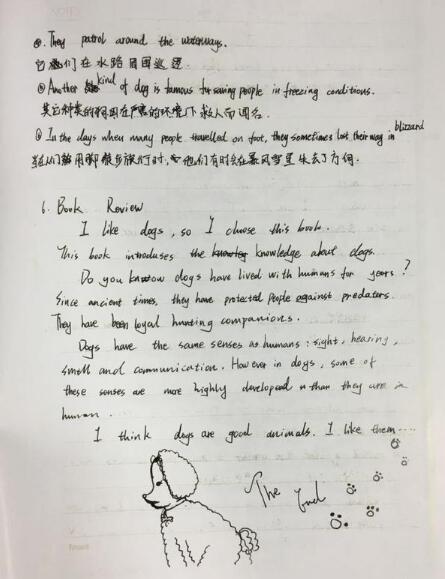 ⊙. They patrol around the waterways.
它们在水路周围巡逻
⊙ Another kind of dog is famous for saving people in freezing conditions.
其它种类的狗因在严寒的环境下救人而闻名.
⊙ In the days when many people travelled on foot, they sometimes lost their way in blizzard
当人们都用脚徒步旅行时, 他们有时会在暴风雪里失去了方向.
6. Book Review
I like dogs, so I choose this book.
This book introduses the knowledge about dogs.
Do you know dogs have lived with humans for years?
Since ancient times, they have protected people against predators.
They have been loyal hunting companions.
Dogs have the same senses as humans: sight, hearing,
smell and communication. However in dogs, some of
these senses are more highly developed than they are in
human.
I think dogs are good animals. I like them....
The End